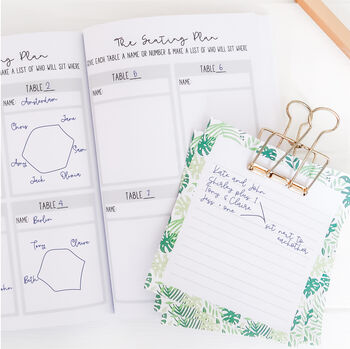 ing Plan
MAKE A LIST OF WHO WILL SIT WHERE
TABLE 2
NAME: Amsterdam
Chris
Jane
Amy
Sam
Jack
Olivia
TABLE 4
NAME: Berlin
Tony
Claire
Beth
The Seating Plan
GIVE EACH TABLE A NAME OR NUMBER & MAKE A LIST OF WHO WILL SIT WHERE
TABLE 6
TABLE 6
NAME:
NAME:
TABLE 7
NAME:
Kate and John
Shirley plus 1
Tony & Claire
Jess + one
sit next to
eachother